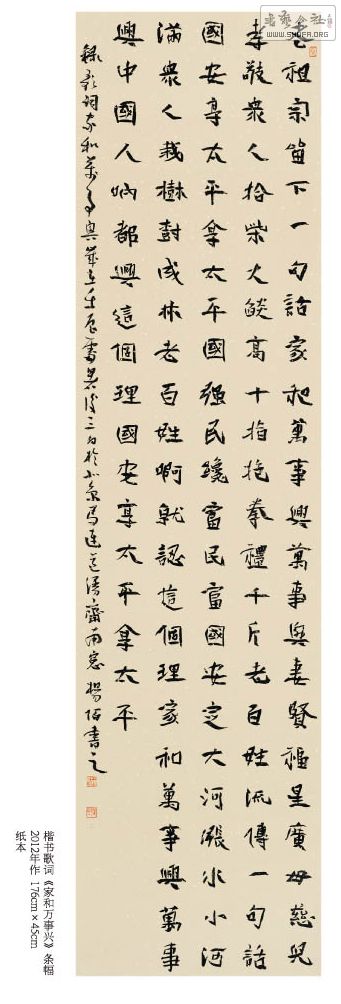 书艺公社
WWW.SHUFA.ORG
老祖宗留下一句話家和萬事興萬事興妻賢福星廣母慈兒
孝敬衆人拾柴火燄高十指抱拳禮千斤老百姓流傳一句話
國安享太平享太平國強民纔富民富國安定大河漲水小河
滿衆人栽樹樹成林老百姓啊就認這個理家和萬事興萬事
興中國人吶都興這個理國安享太平享太平
錄歌詞家和萬事興歲在壬辰暑後三日於北京馬連道齋南窓楊書之
楷书歌词《家和万事兴》条幅
2012年作 176cm×45cm
纸本